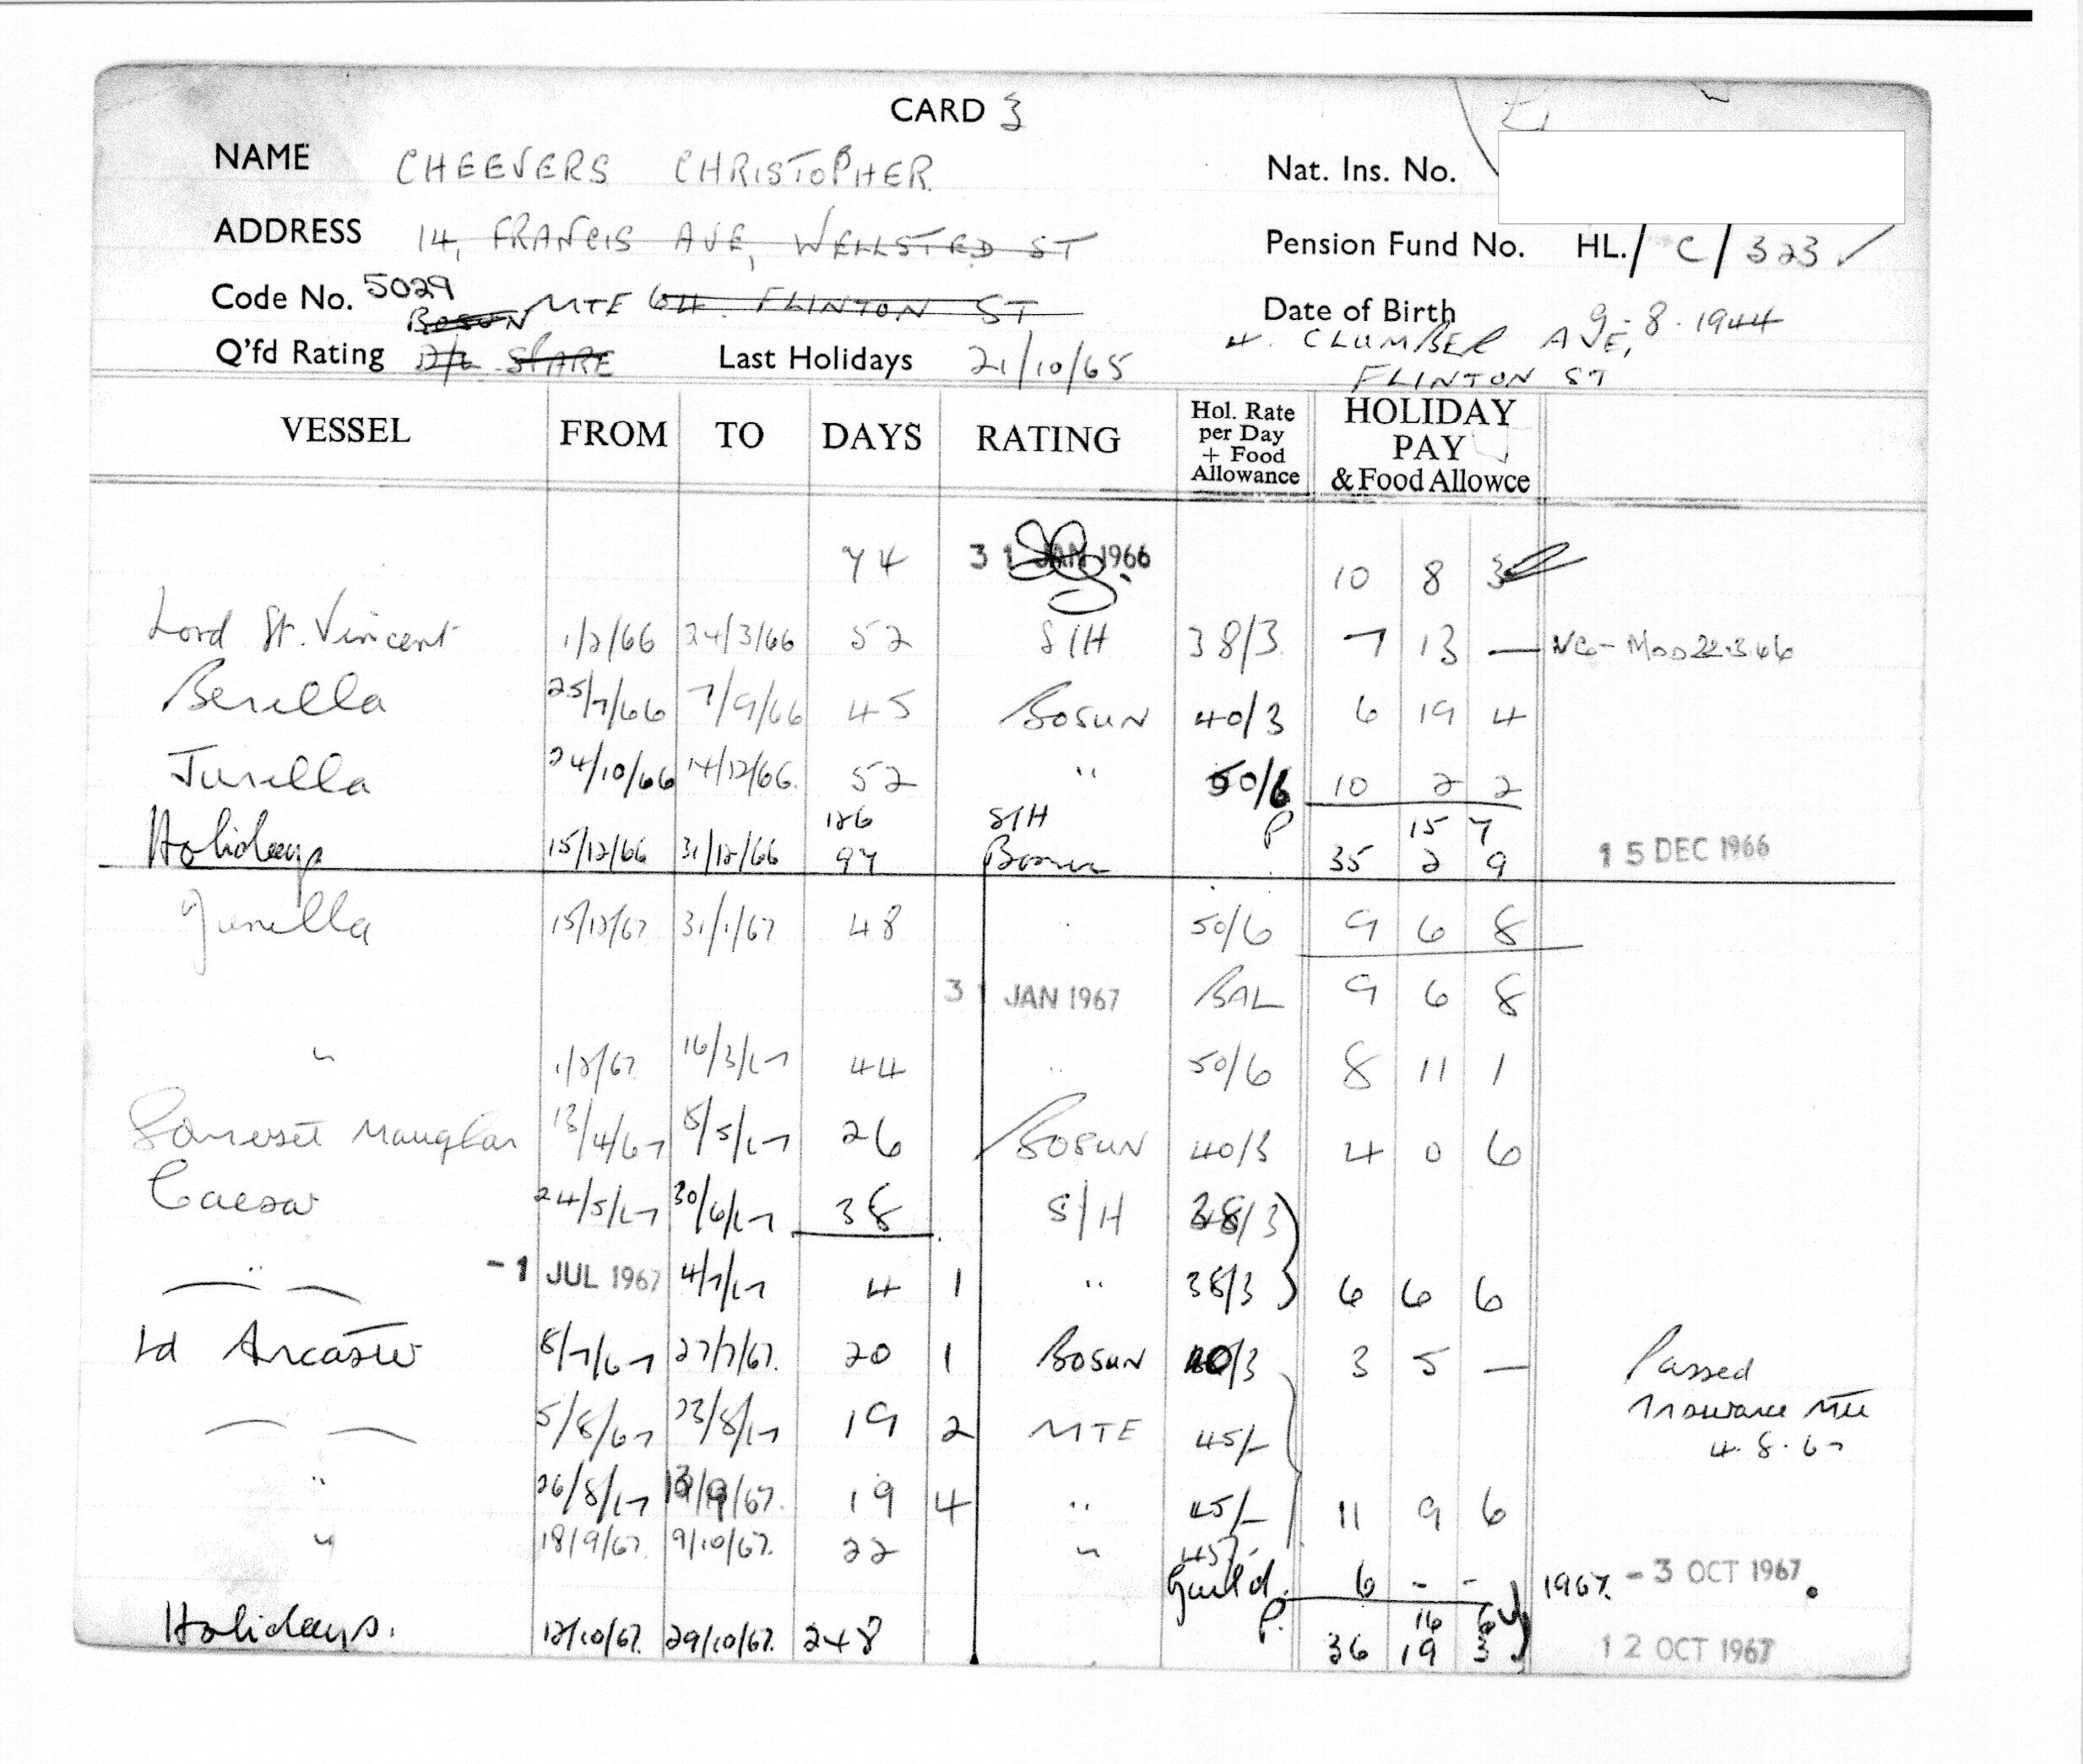 CARD 3
NAME CHEEVERS CHRISTOPHER
Nat. Ins. No.
ADDRESS 14, FRANCIS AVE, WELLSTED ST
Pension Fund No. HL./ C / 323 ✓
Code No. 5029 BOSUN MTE 64 FLINTON ST
Date of Birth 9.8.1944
4. CLUMBER AVE,
Q'fd Rating D/L SPARE Last Holidays 21/10/65 FLINTON ST
VESSEL FROM TO DAYS RATING Hol. Rate per Day + Food Allowance HOLIDAY PAY & Food Allowce
74 31 JAN 1966 10 8 3
Lord St. Vincent 1/2/66 24/3/66 52 S/H 38/3 7 13 —
Benella 25/7/66 7/9/66 45 BOSUN 40/3 6 19 4
Junella 24/10/66 14/12/66. 52 " 50/6 10 2 2
126 S/H P 15 7
Holidays 15/12/66 31/12/66 97 Bosun 35 2 9 15 DEC 1966
Junella 15/12/67 31/1/67 48 50/6 9 6 8
31 JAN 1967 BAL 9 6 8
" 1/2/67. 16/3/67 44 " 50/6 8 11 1
Somerset Maugham 13/4/67 8/5/67 26 BOSUN 40/3 4 0 6
Caesar 24/5/67 30/6/67 38 S/H 38/3
— " — -1 JUL 1967 4/7/67 4 1 " 38/3 6 6 6
Ld Ancaster 8/7/67 27/7/67. 20 1 BOSUN 40/3 3 5 — Passed
— — 5/8/67 23/8/67 19 2 MTE 45/- Insurance Mte
4.8.67
" 26/8/67 13/9/67. 19 4 " 45/- 11 9 6
" 18/9/67. 9/10/67. 22 " 45/-
Guild. 6 - - 1967. -3 OCT 1967.
P. 16 6
Holidays. 12/10/67. 29/10/67. 248 36 19 3 12 OCT 1967